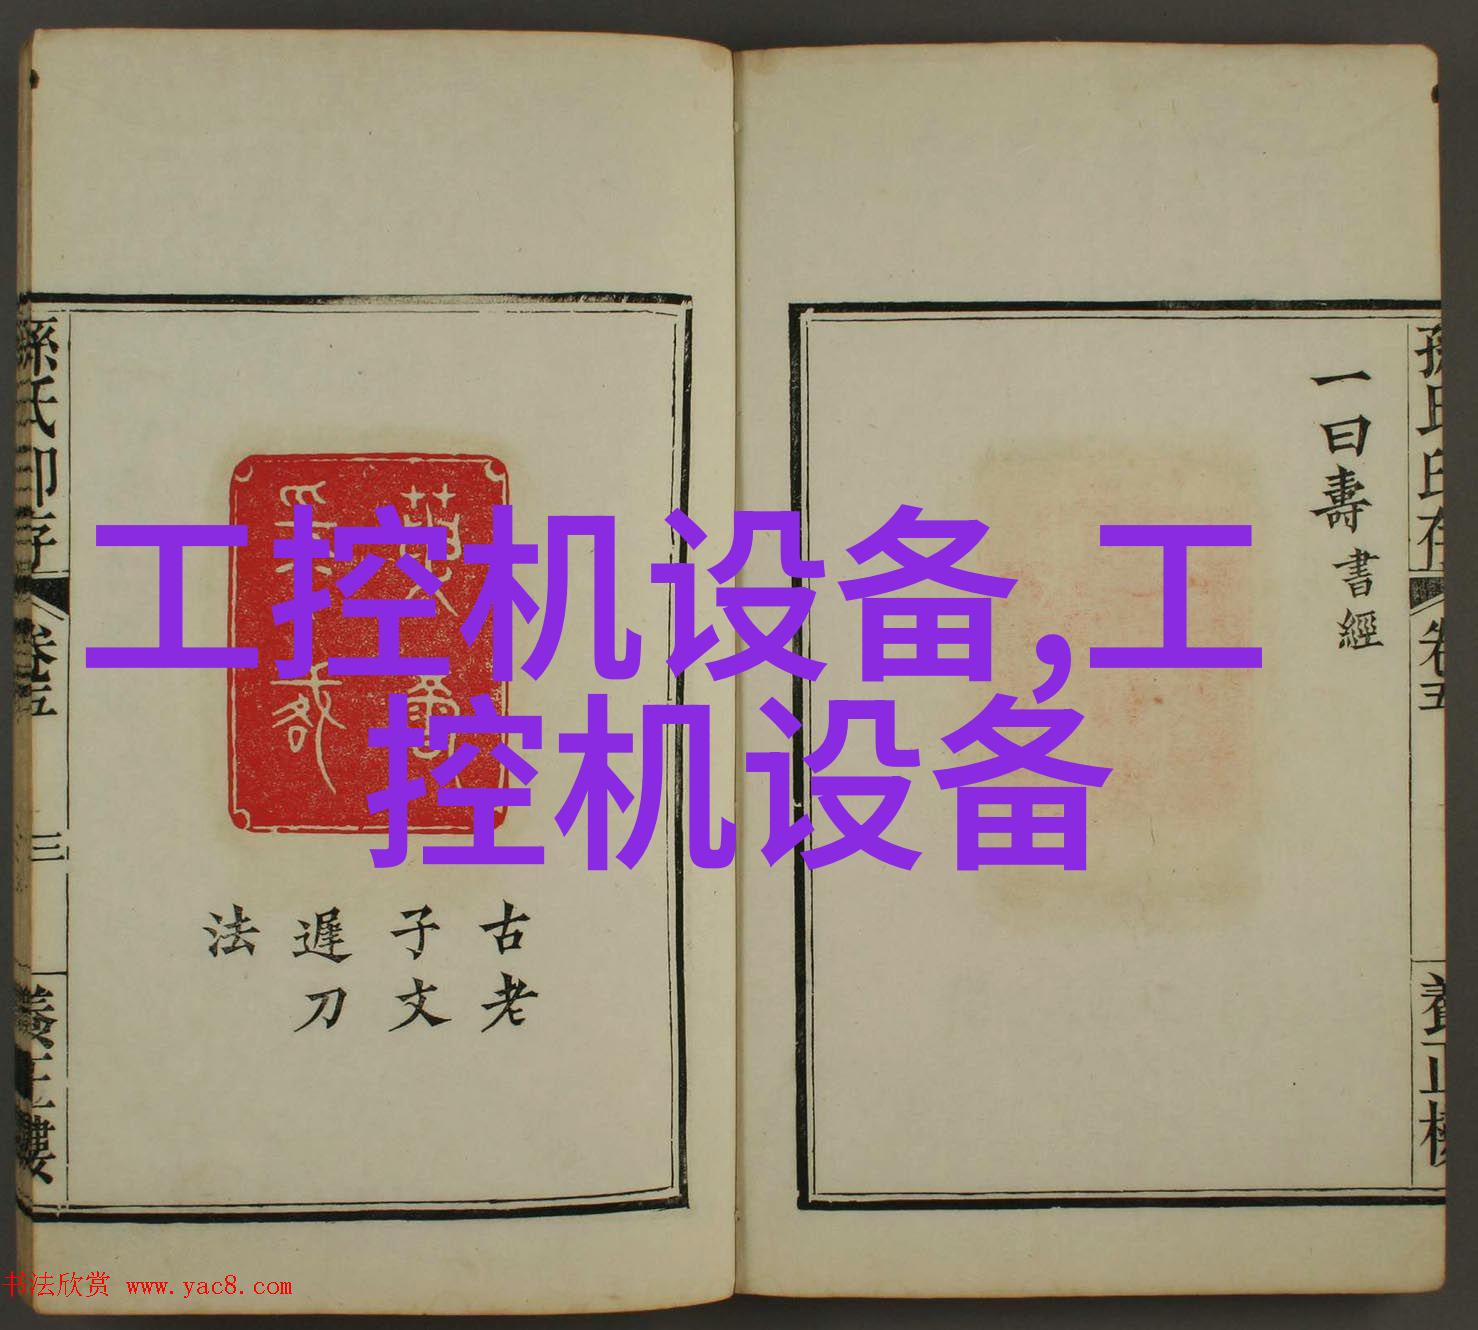 工控机设备,工
控机设备
孫氏印存
卷五
養正樓
一曰壽書經
古老
子文
遲刀
法
孫氏印存
卷五
三
養正樓
书法欣赏 www.yac8.com